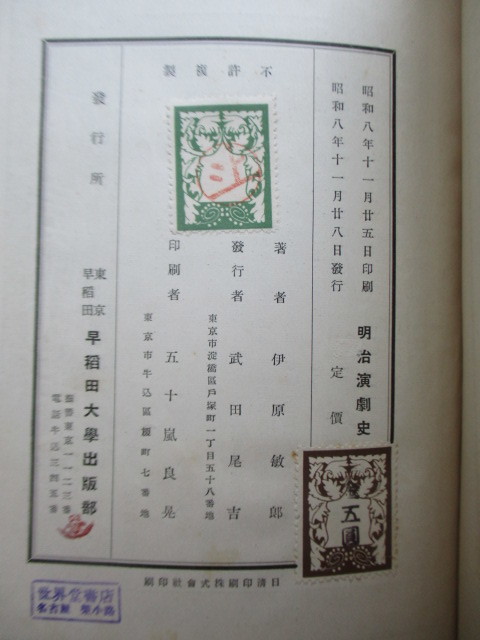 不許複製
昭和八年十一月廿五日印刷
昭和八年十一月廿八日發行
明治演劇史
定價
五圓
著者 伊原敏郎
東京市淀橋區戶塚町一丁目五十八番地
發行者 武田尾吉
東京市牛込區榎町七番地
印刷者 五十嵐良晃
發行所
東京
早稻田
早稻田大學出版部
振替東京一一二三番
電話牛込三四五番
日清印刷株式會社印刷
世界堂書店
名古屋